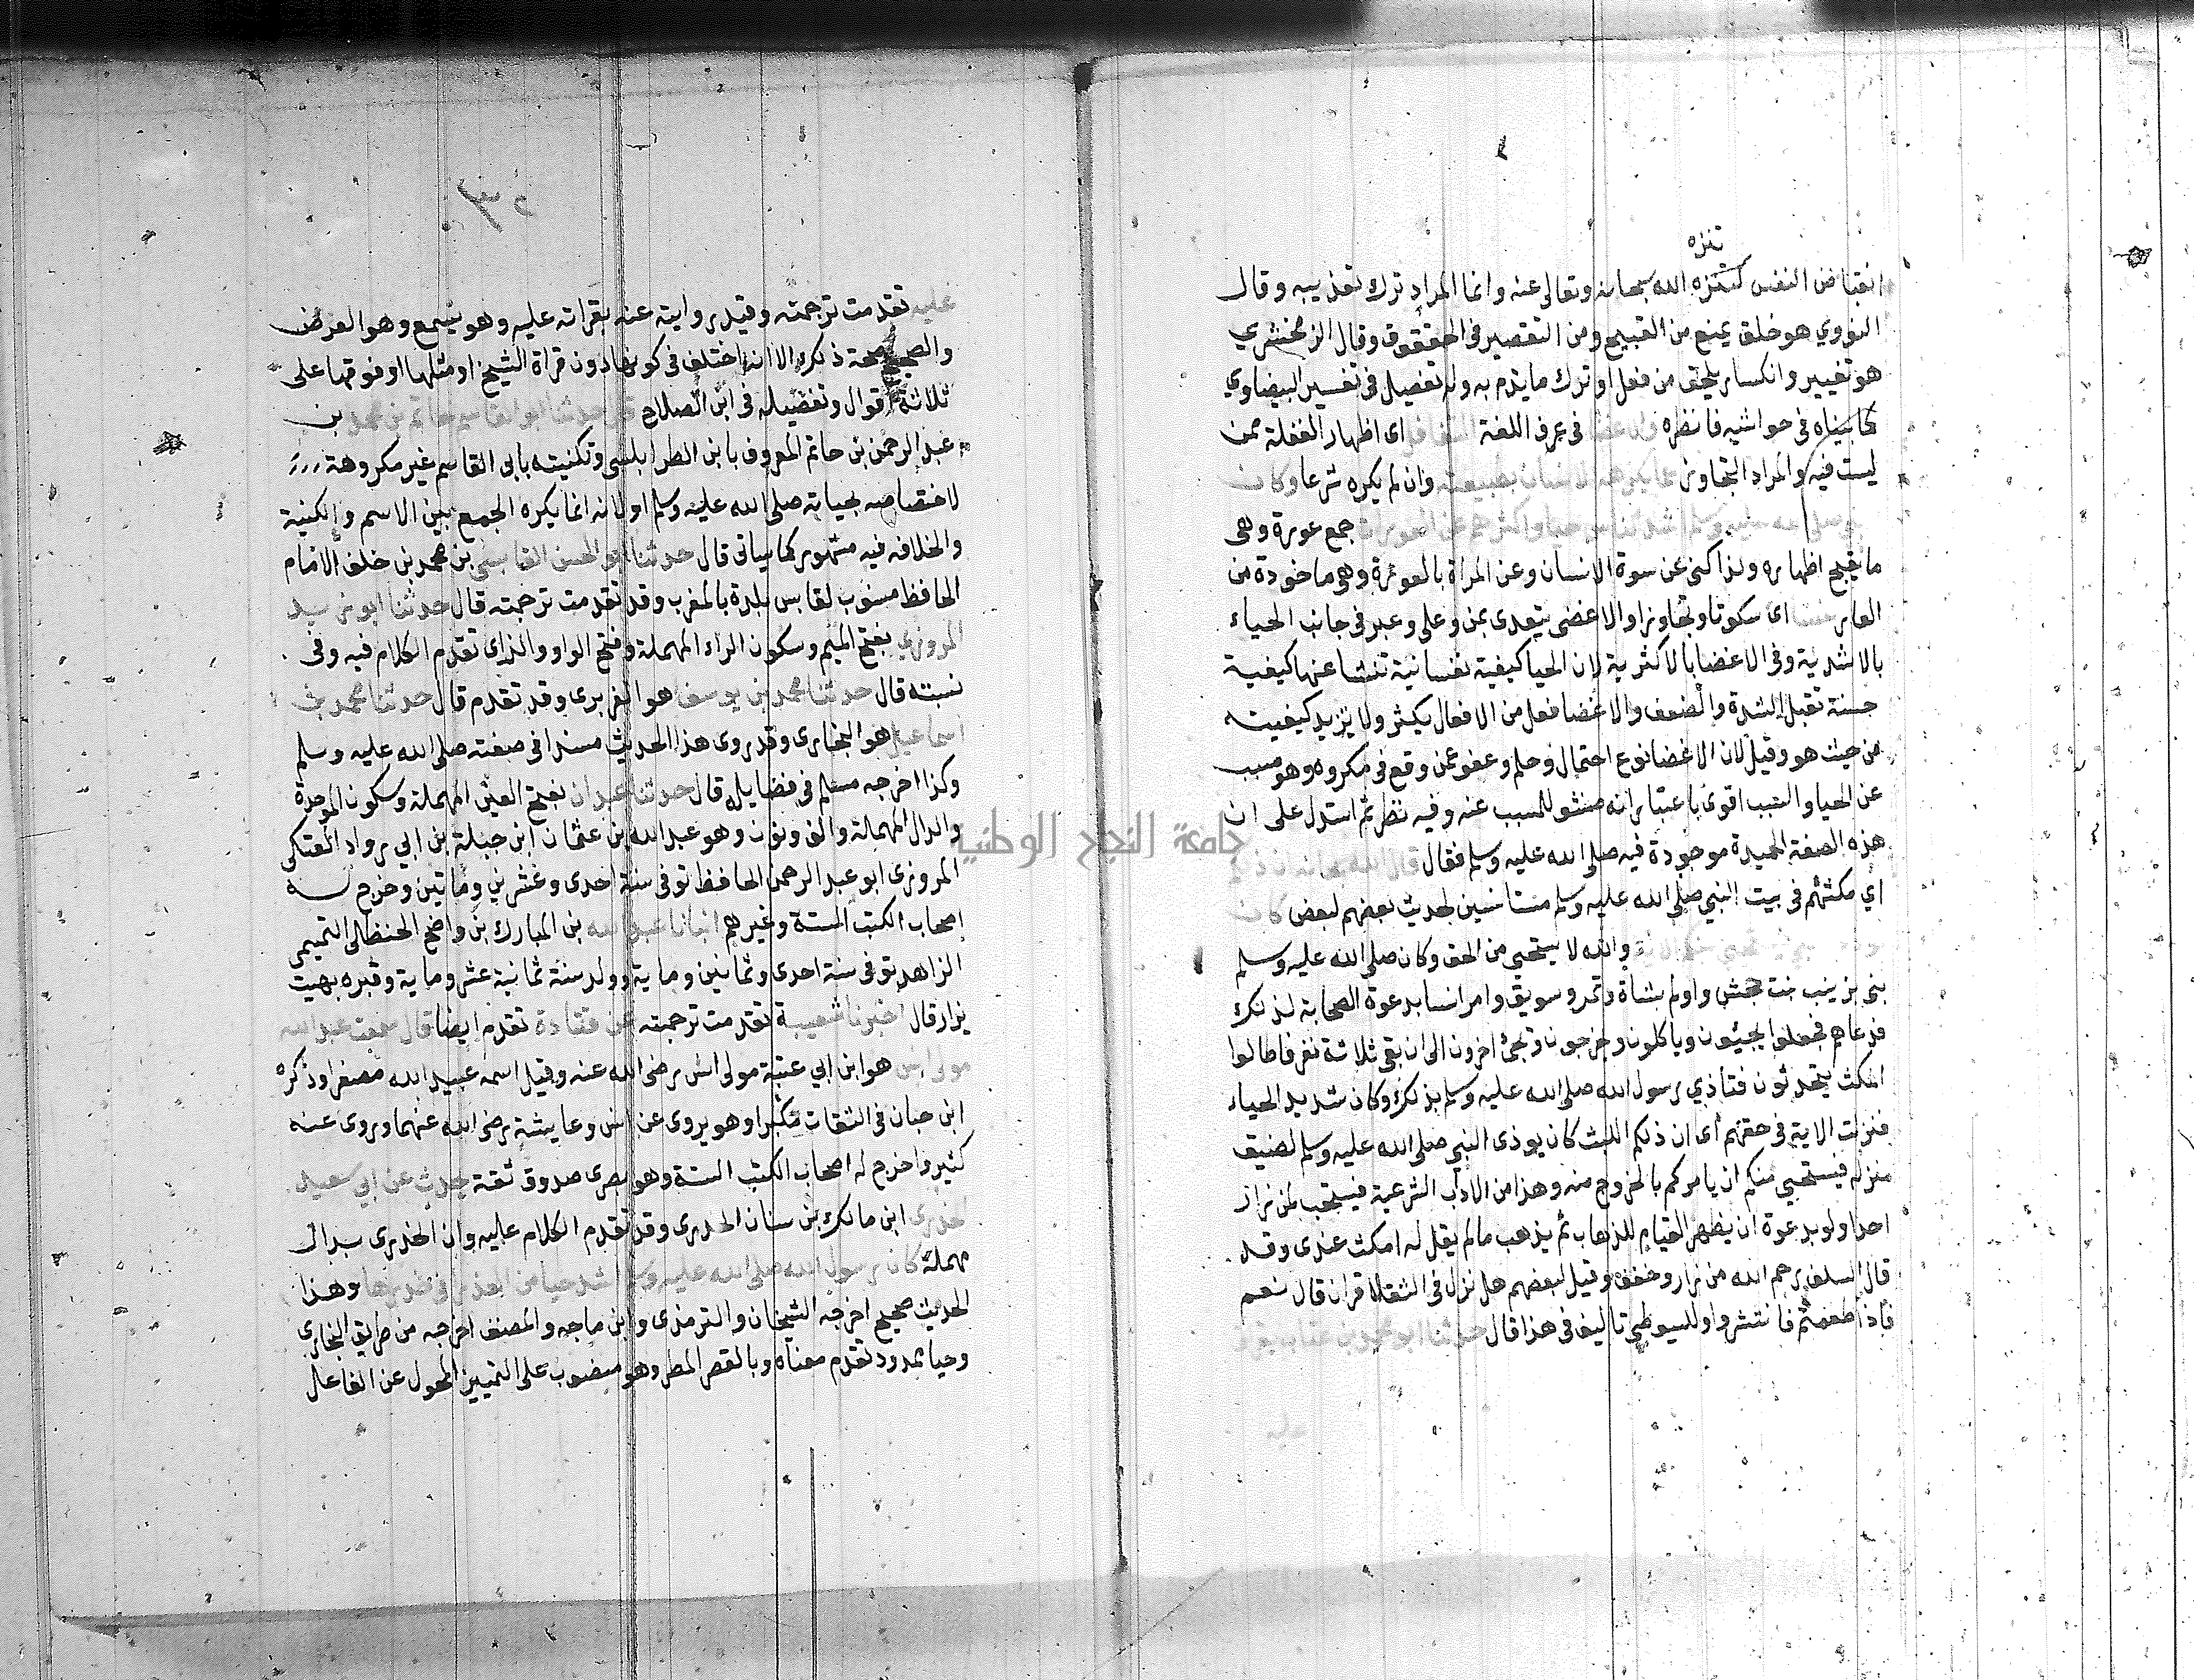 تنزه
انقباض النفس لتنزه الله سبحانه وتعالى عنه وانما المراد ترك تعذيبه وقال
النووي هو خلق يمنع من القبيح ومن التقصير في الحقوق وقال الزمخشري
هو تغيير وانكسار يلحق من فعل او ترك ما يذم به وله تفصيل في تفسير البيضاوي
كما بيناه في حواشيه فانظره والاغضا في عرف اللغة التغافل اى اظهار الغفلة ممن
ليست فيه والمراد التجاوز عما يكرهه الانسان بطبيعته وان لم يكره شرعا وكان
صلى الله عليه وسلم اشد الناس حيا واكثرهم عن العورات جمع عورة وهى
ما يقبح اظهاره ولذا كنى عن سوة الانسان وعن المراة بالعورة وهى ماخوذة من
العار اى سكوتا وتجاوزا والاغضى يتعدى بعن وعلى وعبر في جانب الحياء
بالاشدية وفي الاغضا بالاكثرية لان الحيا كيفية نفسانية تنشا عنها كيفية
حسنة تقبل الشدة والضعف والاغضا فعل من الافعال يكثر ولا تزيد كيفيته
من حيث هو وقيل لان الاغضا نوع احتمال وحلم وعفو عمن وقع في مكروه وهو مسبب
عن الحيا والسبب اقوى باعتبار انه منشو للمسبب عنه وفيه نظر ثم استدل على ان
هذه الصفة الحميدة موجودة فيه صلى الله عليه وسلم فقال قال الله تعالى ان ذلكم
اي مكثهم في بيت النبي صلى الله عليه وسلم مستانسين لحديث بعضهم لبعض كان
والله لا يستحيي من الحق وكان صلى الله عليه وسلم
بنى بزينب بنت جحش واولم بشاة وتمر وسويق وامر انسا بدعوة الصحابة لذلك
فدعاهم فجعلوا يجيئون وياكلون وخرجون وتجئ اخرون الى ان بقى ثلاثة نفر فاطالوا
المكث يتحدثون فتاذي رسول الله صلى الله عليه وسلم بذلك وكان شديد الحياء
فنزلت الاية في حقهم أى ان ذلكم اللبث كان يوذى النبي صلى الله عليه وسلم لضيق
منزله فيستحيي منكم ان يامركم بالخروج منه وهذا من الاداب الشرعية فيستحب لمن زار
احدا ولو بدعوة ان يظهر القيام للذهاب ثم يذهب ما لم يقل له امكث عندى وقد
قال السلف رحم الله من زار وخفف وقيل لبعضهم هل نزل في الثقلا قران قال نعم
فاذا طعمتم فانتشروا وللسيوطي تاليف في هذا قال حدثنا ابو محمد بن عتاب
عليه
عليه تقدمت ترجمته وقيد روايته عنه بقراته عليه وهو يسمع وهو العرض
والصحيح صحة ذلك الا انه اختلف في كونها دون قراة الشيخ او مثلها او فوقها على
ثلاثة اقوال وتفضيله في ابن الصلاح قال حدثنا ابو القاسم حاتم بن محمد بن
عبد الرحمن بن حاتم المعروف بابن الطرابلسي وتكنيته بابى القاسم غير مكروهة
لاختصاصه بحياته صلى الله عليه وسلم او لانه انما يكره الجمع بين الاسم والكنية
والخلافه فيه مشهور كما سياتى قال حدثنا ابو الحسن القابسى بن محمد بن خلف الامام
الحافظ منسوب لقابس بلدة بالمغرب وقد تقدمت ترجمته قال حدثنا ابو زيد
المروزي بفتح الميم وسكون الراء المهملة وفتح الواو والزاى تقدم الكلام فيه وفي
نسبته قال حدثنا محمد بن يوسف هو الفربرى وقد تقدم قال حدثنا محمد بن
اسماعيل هو البخارى وقد روى هذا الحديث مسندا في صفته صلى الله عليه وسلم
وكذا اخرجه مسلم في فضايله قال حدثنا عبدان بفتح العين المهملة وسكون الموحدة
والدال المهملة والف ونون وهو عبد الله بن عثمان ابن جبلة بن ابي رواد العتكي
المروزى ابو عبد الرحمن الحافظ توفى سنة احدى وعشرين ومائتين وخرج له
اصحاب الكتب الستة وغيرهم انبانا عبد الله بن المبارك بن واضح الحنظلى التميمى
الزاهد توفى سنة احدى وثمانين وماية وولد سنة ثمانية عشر وماية وقبره بهيت
يزار قال اخبرنا شعبة تقدمت ترجمته عن قتادة تقدم ايضا قال سمعت عبد الله
مولى انس هو ابن ابي عتبة مولى انس رضى الله عنه وقيل اسمه عبيد الله مصغرا وذكره
ابن حبان في الثقات مكبرا وهو يروى عن انس وعايشة رضى الله عنهما وروى عنه
كثير واخرج له اصحاب الكتب الستة وهو بصرى صدوق ثقة يحدث عن ابي سعيد
الخدرى ابن مالك بن سنان الخدرى وقد تقدم الكلام عليه وان الخدرى بدال
مهملة كان رسول الله صلى الله عليه وسلم اشد حيا من العذرا في خدرها وهذا
الحديث صحيح اخرجه الشيخان والترمذى وابن ماجه والمصنف اخرجه من طريق البخارى
وحيا ممدود تقدم معناه وبالقصر المطر وهو منصوب على التمييز المحول عن الفاعل
جامعة النجاح الوطنية